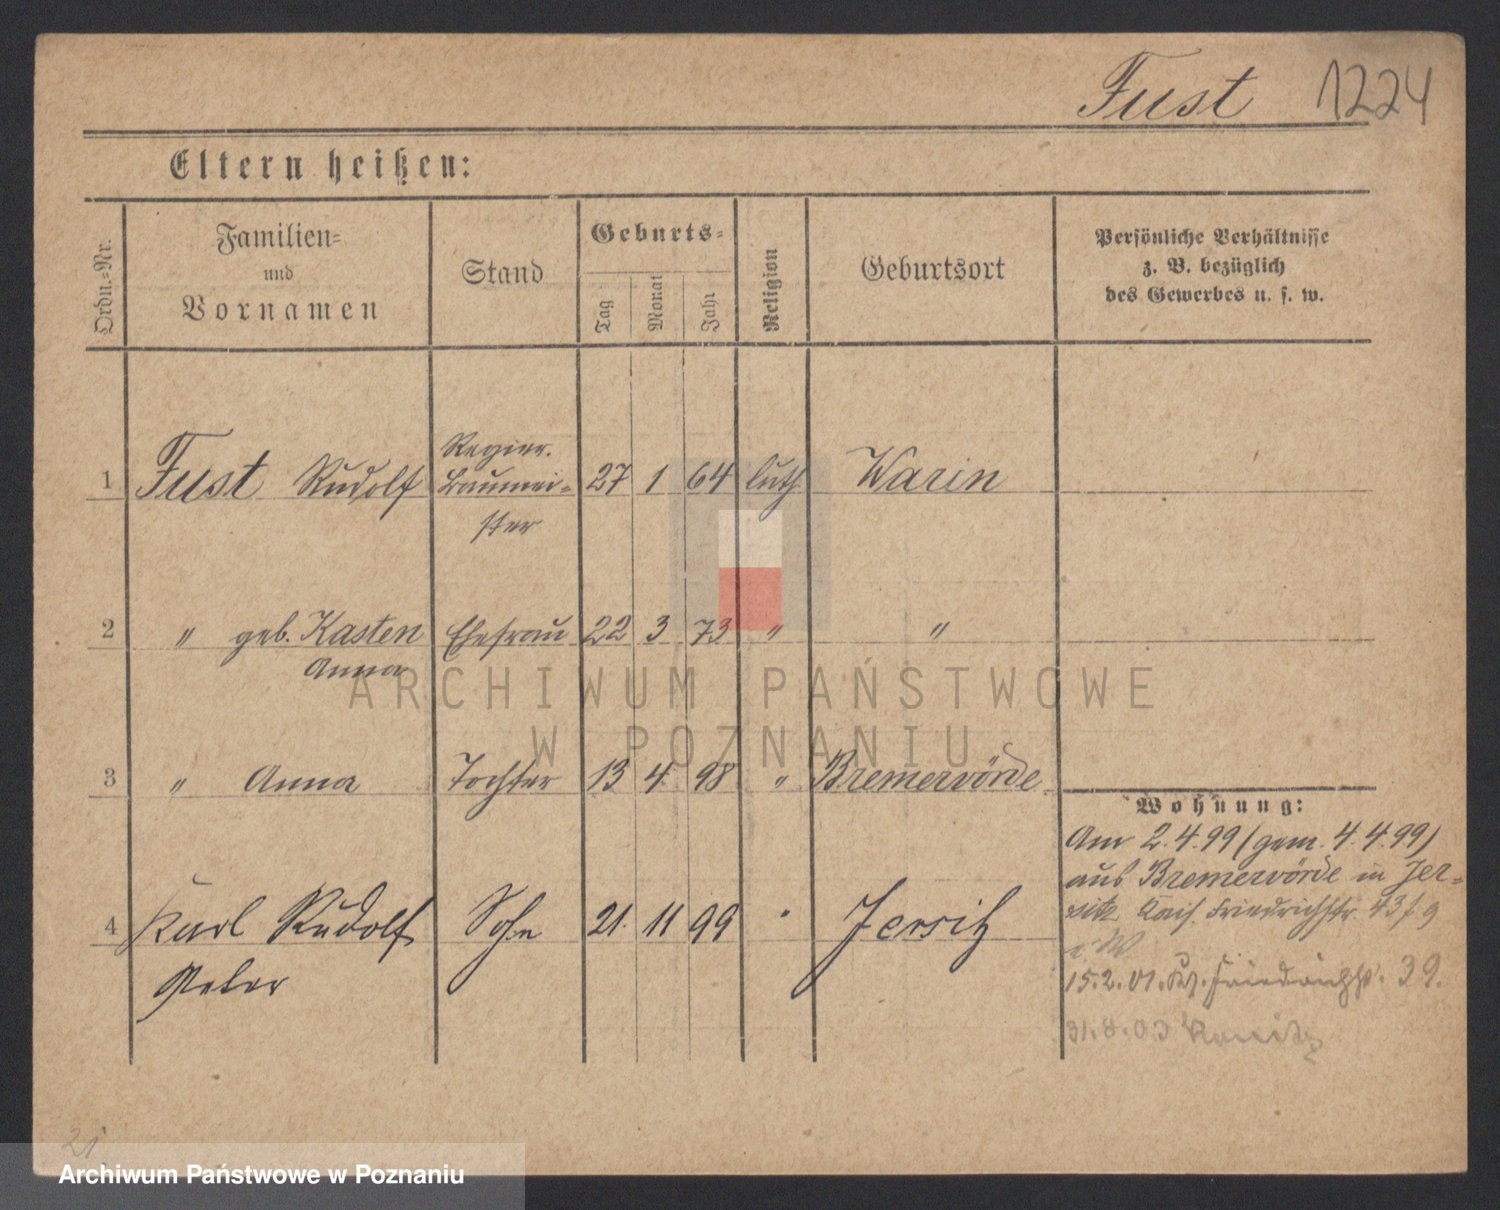 Fust 1224
Eltern heißen:
Ordn.=Nr.
Familien=
und
Vornamen
Stand
Geburts=
Tag
Monat
Jahr
Religion
Geburtsort
Persönliche Verhältnisse
z. B. bezüglich
des Gewerbes u. s. w.
Regier.
1 Fust Rudolf Baumei= 27 1 64 luth Warin
ster
2 " geb. Kasten Ehefrau 22 3 73 " "
Anna
3 " Anna Tochter 13 4 98 " Bremervörde
Wohnung:
Am 2.4.99 (gem. 4.4.99)
aus Bremervörde in Jer=
sitz Kais. Friedrichstr.
4 Karl Rudolf Sohn 21. 11 99 " Jersitz
Peter
15.2.01. Friedrichstr. 39.
31.8.03 Konitz
21.
ARCHIWUM PAŃSTWOWE
W POZNANIU
Archiwum Państwowe w Poznaniu